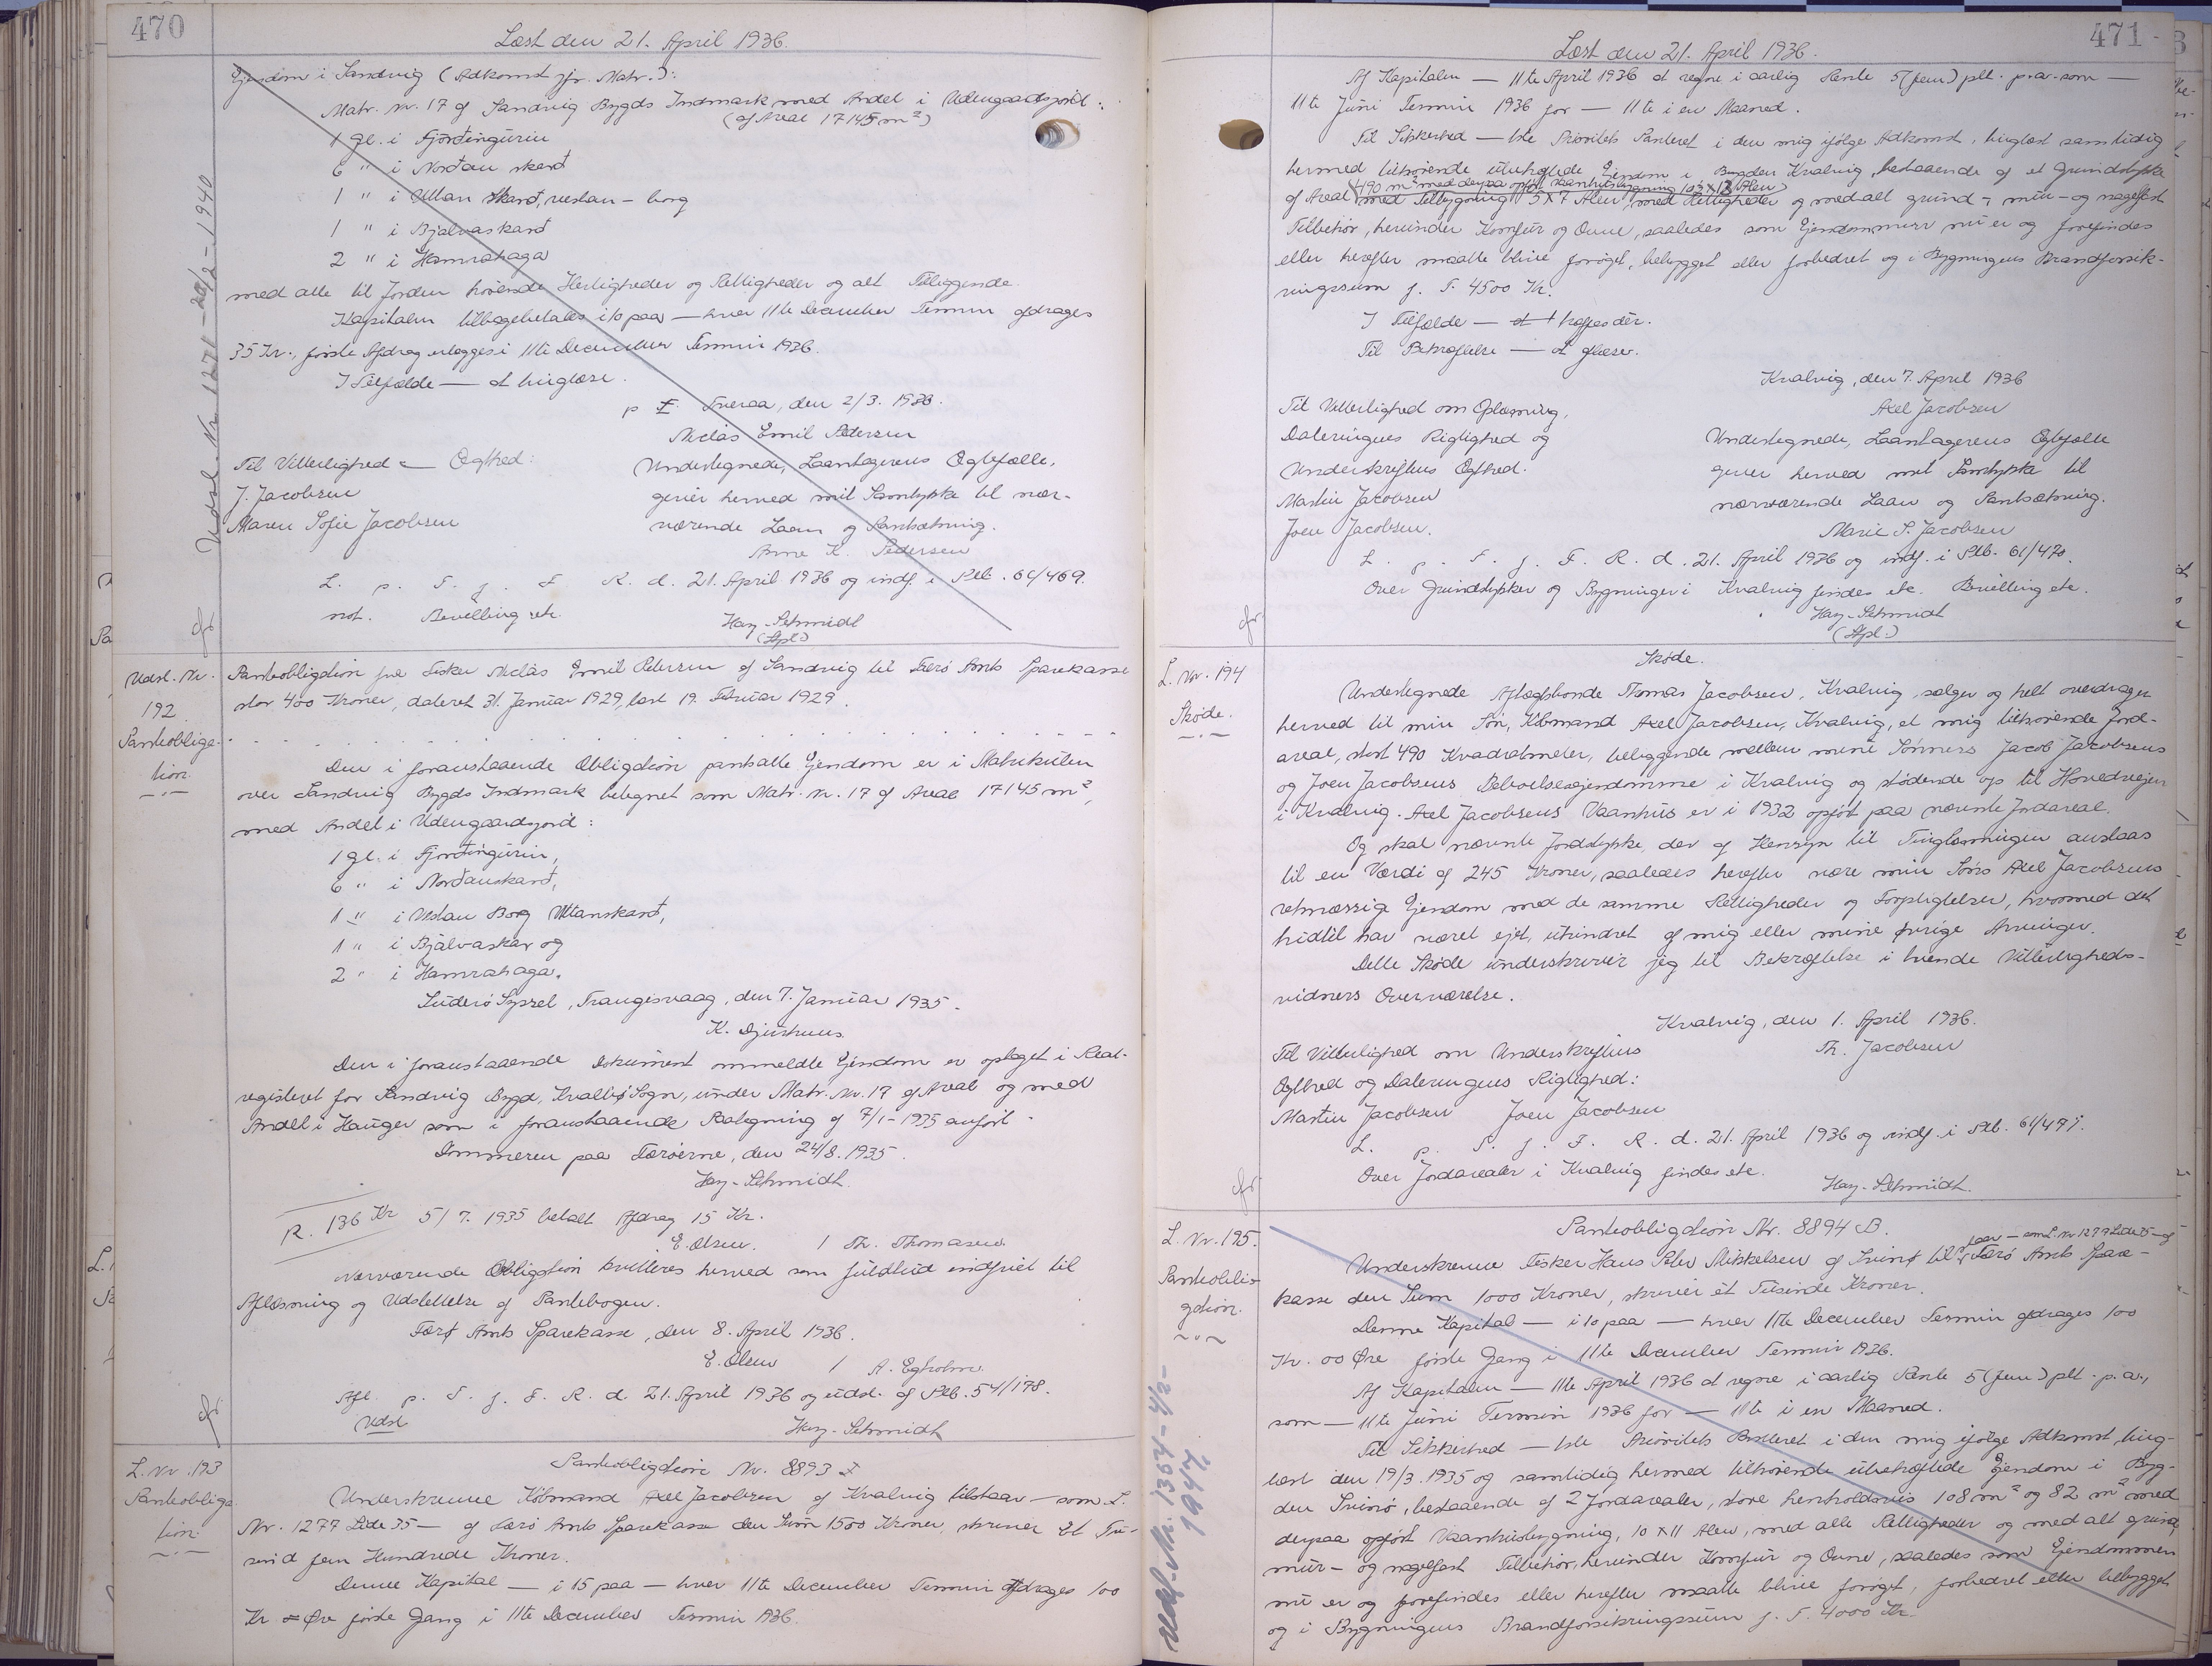 470
Læst den 21. April 1936.
Ejendom i Sandvig (Adkomst jfr. Matr.):
Matr. Nr. 17 af Sandvig Bygds Indmark med Andel i Udengaardsjord:
(af Areal 17145 m²)
1 gl. i Fjórðingurin
6 " i Norðan skarð
1 " i Uttan skarð, vestan-borg
1 " i Bjálvaskarð
2 " i Hamrahaga
med alle til Jorden hørende Herligheder og Rettigheder og alt Tilliggende.
Kapitalen tilbagebetales i 10 paa — hver 11te December Termin afdrages
35 Kr., første Afdrag erlægges i 11te December Termin 1936.
I Tilfælde — at tinglæse.
p. t. Tveraa, den 2/3. 1936.
Niclas Emil Pedersen
Til Vitterlighed — Ægthed:
J. Jacobsen
Maren Sofie Jacobsen
Undertegnede, Laantagerens Ægtefælle,
giver herved mit Samtykke til nær-
værende Laan og Pantsætning.
Anne K. Pedersen
L. p. T. f. F. R. d. 21. April 1936 og indf. i Ptb. 61/469.
not. Bevilling etc.
Hay-Schmidt
(Spl.)
Udsl. Nr. 1271 - 20/2 - 1940
cfr.
Udsl. Nr.
192
Pantobliga-
tion.
Pantobligation fra Fisker Niclas Emil Petersen af Sandvig til Færø Amts Sparekasse
stor 400 Kroner, dateret 31. Januar 1929, læst 19. Februar 1929.
Den i foranstaaende Obligation pantsatte Ejendom er i Matrikulen
over Sandvig Bygds Indmark betegnet som Matr. Nr. 17 af Areal 17145 m²,
med Andel i Udengaardsjord:
1 gl. i Fjórðingurin,
6 " i Norðanskarð,
1 " i Vestan Borg Uttanskarð,
1 " i Bjálvaskar og
2 " i Hamrahaga.
Suderø Syssel, Trangisvaag, den 7. Januar 1935.
K. Djurhuus.
Den i foranstaaende Dokument ommeldte Ejendom er optaget i Real-
registeret for Sandvig Bygd, Kvalbø Sogn, under Matr. Nr. 17 af Areal og med
Andel i Hauger som i foranstaaende Paategning af 7/1-1935 anført.
Dommeren paa Færøerne, den 24/8. 1935.
Hay-Schmidt.
R. 136 Kr 5/7. 1935 betalt Afdrag 15 Kr.
E. Olsen. / Th. Thomasen.
Nærværende Obligation kvitteres herved som fuldtud indfriet til
Aflæsning og Udslettelse af Pantebogen.
Færø Amts Sparekasse, den 8. April 1936.
E. Olsen / A. Egholm.
Afl. p. T. f. F. R. d. 21. April 1936 og udsl. af Ptb. 54/178.
Udsl.
Hay-Schmidt
cfr.
L. Nr. 193
Pantobliga-
tion.
Pantobligation Nr. 8893 F
Underskrevne Købmand Axel Jacobsen af Kvalvig tilstaar — som L.
Nr. 1277 Lide 35 — af Færø Amts Sparekasse den Sum 1500 Kroner, skriver Et Tu-
sind fem Hundrede Kroner.
Denne Kapital — i 15 paa — hver 11te December Termin afdrages 100
Kr = Øre første Gang i 11te December Termin 1936.
471
Læst den 21. April 1936.
Af Kapitalen — 11te April 1936 at regne i aarlig Rente 5 (fem) pCt. p. a. som —
11te Juni Termin 1936 for — 11te i en Maaned.
Til Sikkerhed — 1ste Prioritets Panteret i den mig ifølge Adkomst, tinglæst samtidig
hermed tilhørende ubehæftede Ejendom i Bygden Kvalvig, bestaaende af et Grundstykke
490 m² med derpaa opført Vaanhusbygning 10½ X 12 Alen
af Areal med Tilbygning 5 X 7 Alen, med Rettigheder og med alt grund-, mur- og nagelfast
Tilbehør, herunder Komfur og Ovne, saaledes som Ejendommen nu er og forefindes
eller herefter maatte blive forøget, bebygget eller forbedret og i Bygningens Brandforsik-
ringssum f. T. 4500 Kr.
I Tilfælde — at træffes der.
Til Bekræftelse — at aflæse.
Kvalvig, den 7. April 1936
Axel Jacobsen
Til Vitterlighed om Oplæsning,
Dateringens Rigtighed og
Underskriftens Ægthed.
Martin Jacobsen
Joen Jacobsen.
Undertegnede, Laantagerens Ægtefælle
giver herved mit Samtykke til
nærværende Laan og Pantsætning.
Marie S. Jacobsen
L. p. T. f. F. R. d. 21. April 1936 og indf. i Ptb. 61/470.
Over Grundstykker og Bygninger i Kvalvig findes etc. Bevilling etc.
Hay-Schmidt
(Spl.)
cfr.
L. Nr. 194
Skøde.
Skøde.
Undertegnede Aftægtsbonde Thomas Jacobsen, Kvalvig, sælger og helt overdrager
herved til min Søn, Købmand Axel Jacobsen, Kvalvig, et mig tilhørende Jord-
areal, stort 490 Kvadratmeter, beliggende mellem mine Sønners Jacob Jacobsens
og Joen Jacobsens Beboelsesejendomme i Kvalvig og stødende op til Hovedvejen
i Kvalvig. Axel Jacobsens Vaanhus er i 1932 opført paa nævnte Jordareal.
Og skal nævnte Jordstykke, der af Hensyn til Tinglæsningen anslaas
til en Værdi af 245 Kroner, saaledes herefter være min Søns Axel Jacobsens
retmæssige Ejendom med de samme Rettigheder og Forpligtelser, hvormed det
hidtil har været ejet, uhindret af mig eller mine øvrige Arvinger.
Dette Skøde underskriver jeg til Bekræftelse i tvende Vitterligheds-
vidners Overværelse.
Kvalvig, den 1. April 1936.
Th. Jacobsen
Til Vitterlighed om Underskriftens
Ægthed og Dateringens Rigtighed:
Martin Jacobsen Joen Jacobsen
L. p. T. f. F. R. d. 21. April 1936 og indf. i Ptb. 61/471.
Over Jordarealer i Kvalvig findes etc.
Hay-Schmidt.
cfr.
L. Nr. 195.
Pantobli-
gation.
Udsl. Nr. 1364 - 4/2 -
1947.
Pantobligation Nr. 8894 B.
Underskrevne Fisker Hans Peter Mikkelsen af Svinø til Færø Amts Spare-
kasse den Sum 1000 Kroner, skriver et Tusinde Kroner.
Denne Kapital — i 10 paa — hver 11te December Termin afdrages 100
Kr. 00 Øre første Gang i 11te December Termin 1936.
Af Kapitalen — 11te April 1936 at regne i aarlig Rente 5 (fem) pCt. p. a.,
som — 11te Juni Termin 1936 for — 11te i en Maaned.
Til Sikkerhed — 1ste Prioritets Panteret i den mig ifølge Adkomst, ting-
læst den 19/3. 1935 og samtidig hermed tilhørende ubehæftede Ejendom i Byg-
den Svinø, bestaaende af 2 Jordarealer, store henholdsvis 108 m² og 82 m² med
derpaa opført Vaanhusbygning, 10 X 11 Alen, med alle Rettigheder og med alt grund-,
mur- og nagelfast Tilbehør, herunder Komfur og Ovne, saaledes som Ejendommen
nu er og forefindes eller herefter maatte blive forøget, forbedret eller bebygget
og i Bygningens Brandforsikringssum f. T. 4000 Kr.